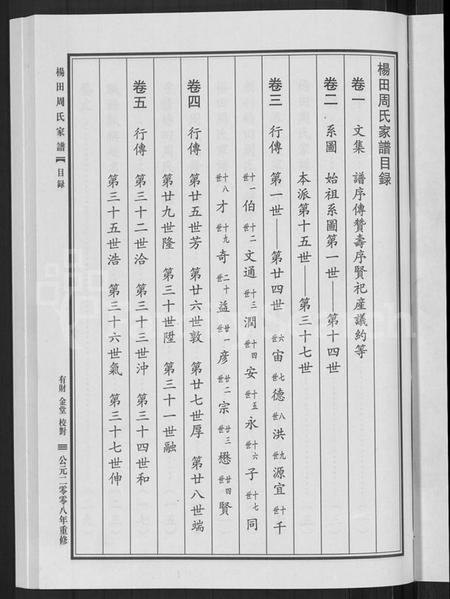 楊田周氏家譜目録
卷一 文集 譜序傳贊壽序賢祀産議約等
卷二 系圖 始祖系圖第一世——第十四世
本派第十五世——第三十七世
卷三 行傳 第一世——第廿四世 六世宙 七世德 八世洪 九世源宜 十世千
十一世伯 十二世文通 十三世潤 十四世安 十五世永 十六世子 十七世同
十八世才 十九世奇 二十世益 廿一世彦 廿二世宗 廿三世懋 廿四世賢
卷四 行傳 第廿五世芳 第廿六世敦 第廿七世厚 第廿八世端
第廿九世隆 第三十世陞 第三十一世融
卷五 行傳 第三十二世洽 第三十三世沖 第三十四世和
第三十五世浩 第三十六世氣 第三十七世伸
楊田周氏家譜 目録
有財 金堂 校對 公元二零零八年重修